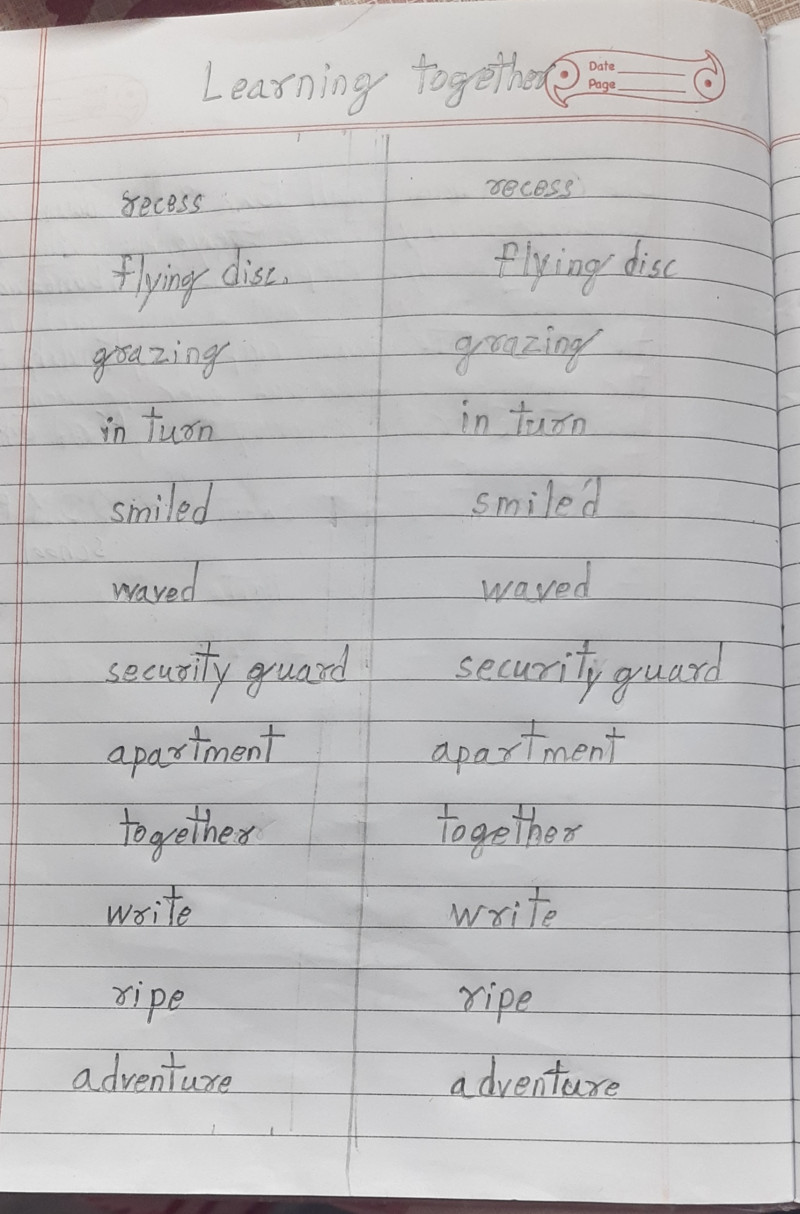 Learning together
Date
Page
recess recess
flying disc. flying disc
grazing grazing
in turn in turn
smiled smiled
waved waved
security guard security guard
apartment apartment
together together
write write
ripe ripe
adventure adventure